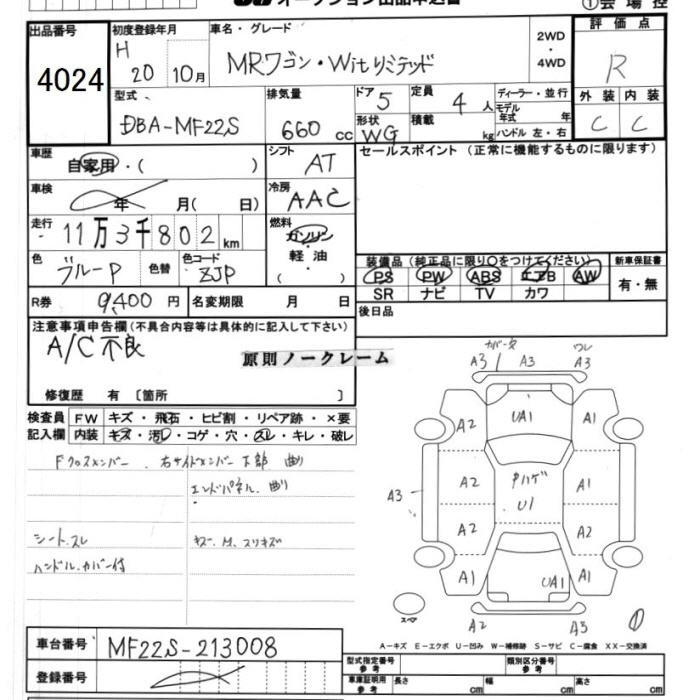 オークション出品申込書
①会場控
出品番号
4024
初度登録年月
H 20 10月
車名・グレード
MRワゴン・Witリミテッド
2WD
・
4WD
評価点
R
型式
DBA-MF22S
排気量
660 cc
ドア 5
定員 4 人
形状 WG
積載 kg
ディーラー・並行
モデル年式 年
ハンドル 左・右
外装 内装
C C
車歴
自家用・( )
シフト AT
セールスポイント (正常に機能するものに限ります)
車検
年 月( 日)
冷房 AAC
走行
11万3千802km
燃料
ガソリン
・
軽油
( )
色 ブルーP 色替
色コード ZJP
装備品 (純正品に限り○をつけてください)
PS PW ABS エアB AW
SR ナビ TV カワ
新車保証書
有・無
R券 9,400円
名変期限 月 日
後日品
注意事項申告欄(不具合内容等は具体的に記入して下さい)
A/C不良
原則ノークレーム
修復歴 有 〔箇所 〕
検査員 FW キズ・飛石・ヒビ割・リペア跡・×要
記入欄 内装 キズ・汚レ・コゲ・穴・スレ・キレ・破レ
Fクロスメンバー 右サイドメンバー下部 曲り
エンドパネル 曲り
シートスレ キズ、M、スリキズ
ハンドルカバー付
カバー欠 ワレ
A3 A3 A3
UA1
A2 A1
A3 A2 Pハゲ A1
U1
A2 A2
A1 UA1 A1
スペア
A2 A3
A-キズ E-エクボ U-凹み W-補修跡 S-サビ C-腐食 XX-交換済
車台番号 MF22S-213008
登録番号
型式指定番号
参考
類別区分番号
参考
車庫証明用
参考
長さ cm 幅 cm 高さ cm